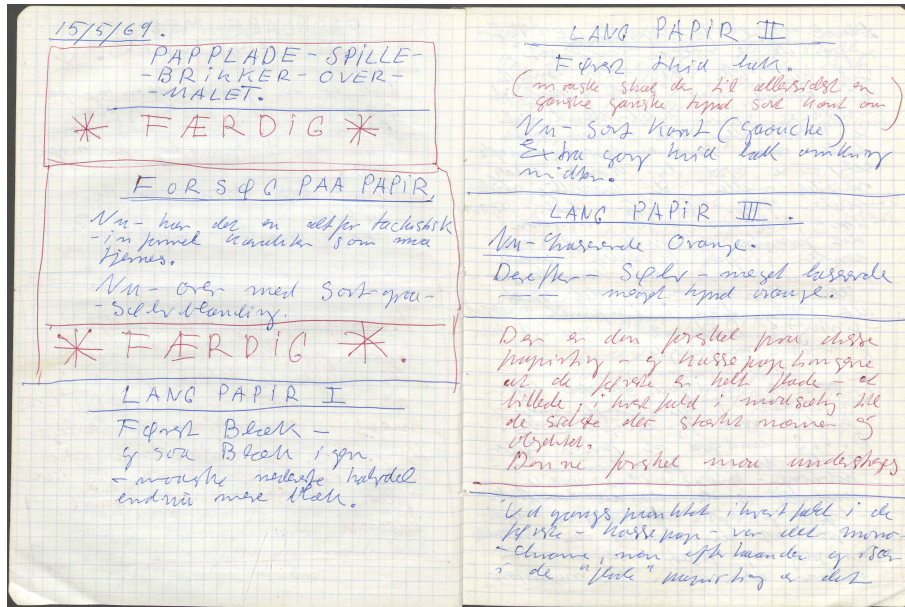 15/5/69.
PAPPLADE-SPILLE-
-BRIKKER-OVER-
-MALET.
* FÆRDIG *
FORSØG PAA PAPIR.
Nu-har det en altfor tachistisk
-informel karakter som maa
fjernes.
Nu-over med sort-graa-
-sølvblanding.
* FÆRDIG *.
LANG PAPIR I
Først Blæk-
og saa Blæk igen.
-maaske nederste halvdel
endnu mere blæk.
LANG PAPIR II
Først hvid lak.
(maaske skal der til allersidst en
ganske ganske tynd sort kant om)
Nu-Sort Kant (gouache)
Extra gang hvid lak omkring
midten.
LANG PAPIR III.
Nu- Orange.
Derefter-Sølv-meget laserende
---- meget tynd orange.
Der er den forskel paa disse
papirting-og kassepaptingene
at de første er helt flade-et
billede, i hvert fald i modsætning til
de sidste der stærkt nærmer sig
objektet.
Denne forskel maa understreges
Udgangspunktet i hvert fald i de
første-kassepap-var det mono-
-chrome, men efterhaanden og især
i de "flade" papirting er det